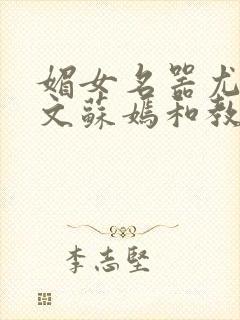 媚女名器尤
文蘇媽和教
李志堅